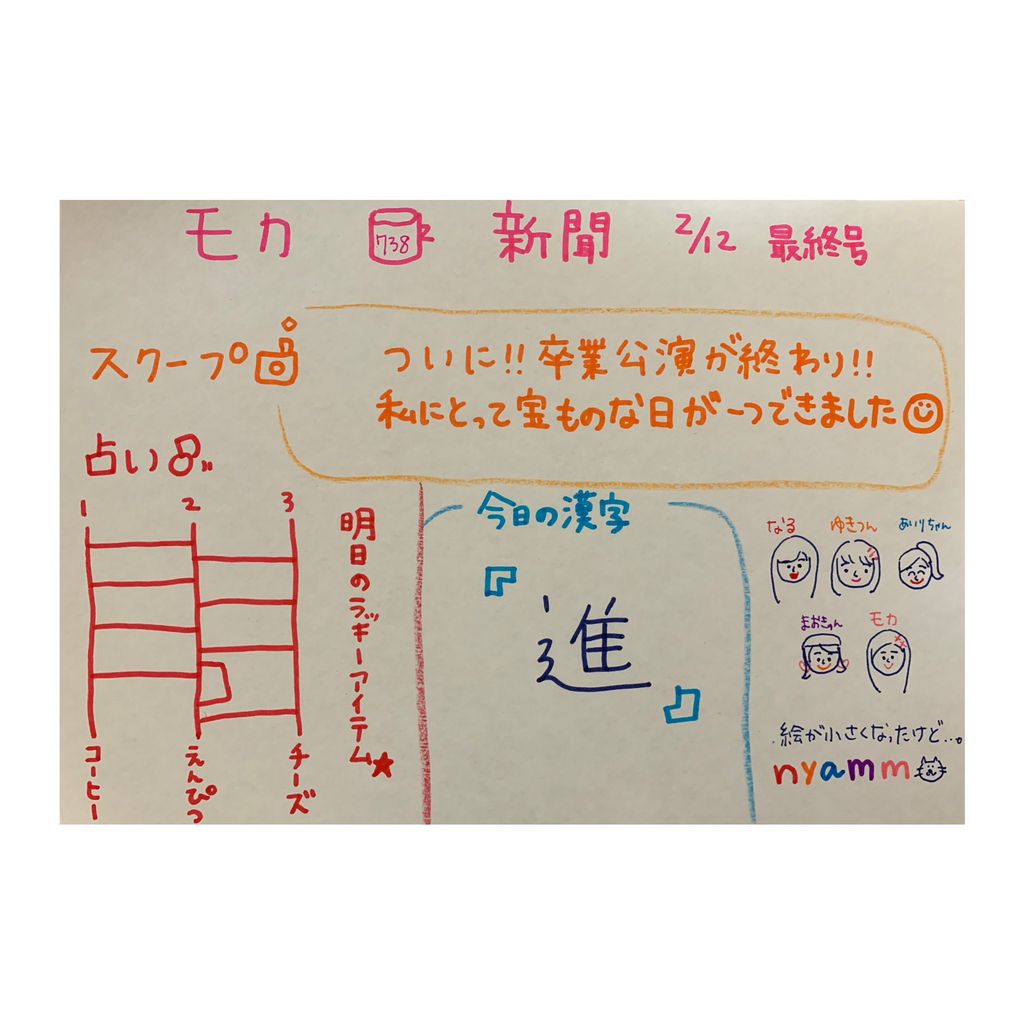 モカ 738 新聞 2/12 最終号
スクープ
ついに!!卒業公演が終わり!!
私にとって宝ものな日が一つできました
占い
1 2 3
コーヒー
えんぴつ
チーズ
明日のラッキーアイテム★
今日の漢字
『進』
なる ゆきつん あいりちゃん
まおきゅん モカ
絵が小さくなったけど...。
nyamm